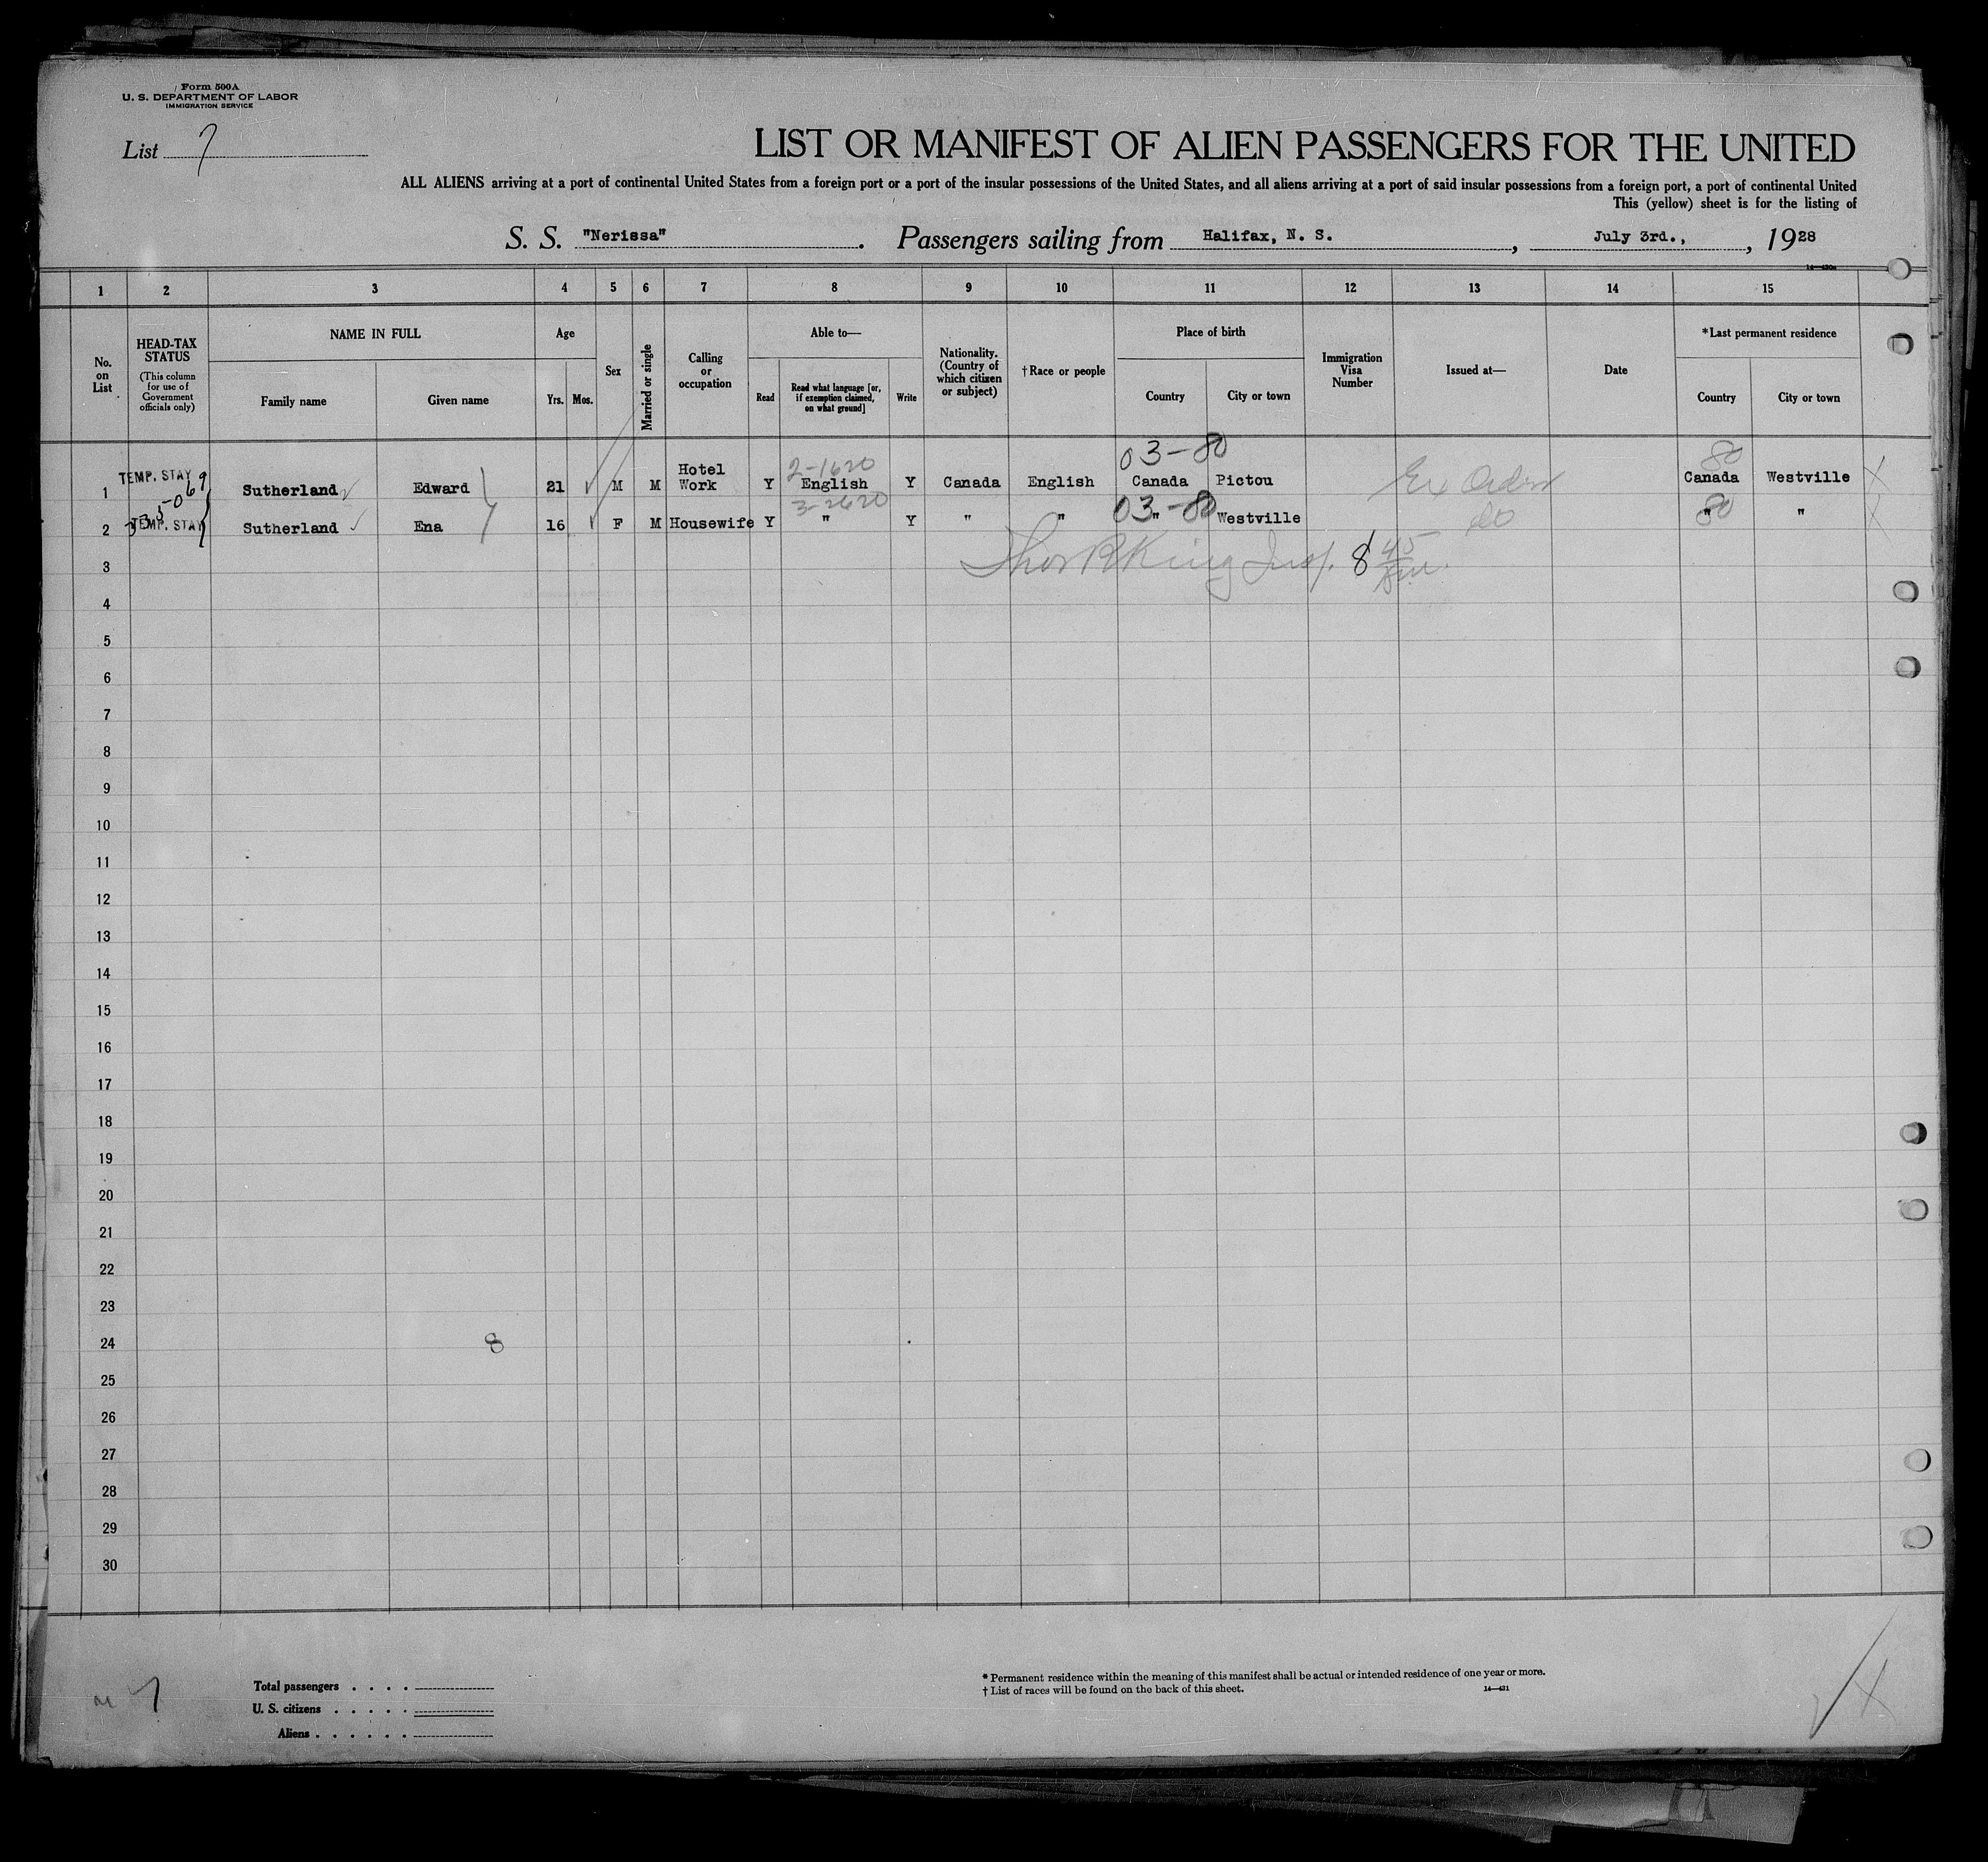 Form 500A
U. S. DEPARTMENT OF LABOR
IMMIGRATION SERVICE
List 7
LIST OR MANIFEST OF ALIEN PASSENGERS FOR THE UNITED
ALL ALIENS arriving at a port of continental United States from a foreign port or a port of the insular possessions of the United States, and all aliens arriving at a port of said insular possessions from a foreign port, a port of continental United
This (yellow) sheet is for the listing of
S. S. "Nerissa". Passengers sailing from Halifax, N. S., July 3rd., , 1928
14—430a
1 2 3 4 5 6 7 8 9 10 11 12 13 14 15
No. on List
HEAD-TAX STATUS (This column for use of Government officials only)
NAME IN FULL
Family name Given name
Age
Yrs. Mos.
Sex
Married or single
Calling or occupation
Able to—
Read Read what language [or, if exemption claimed, on what ground] Write
Nationality. (Country of which citizen or subject)
†Race or people
Place of birth
Country City or town
Immigration Visa Number
Issued at—
Date
*Last permanent residence
Country City or town
03-80
80
2-1620
1 TEMP. STAY Sutherland Edward 21 M M Hotel Work Y English Y Canada English Canada Pictou Ex Order Canada Westville
3-2620
03-80
80
2 TEMP. STAY Sutherland Ena 16 F M Housewife Y " Y " " " Westville do " "
3 Thos R King Insp. 8 45
4
5
6
7
8
9
10
11
12
13
14
15
16
17
18
19
20
21
22
23
24 8
25
26
27
28
29
30
7
Total passengers . . . .
U. S. citizens . . . . .
Aliens . . . . . .
* Permanent residence within the meaning of this manifest shall be actual or intended residence of one year or more.
† List of races will be found on the back of this sheet.
14—431